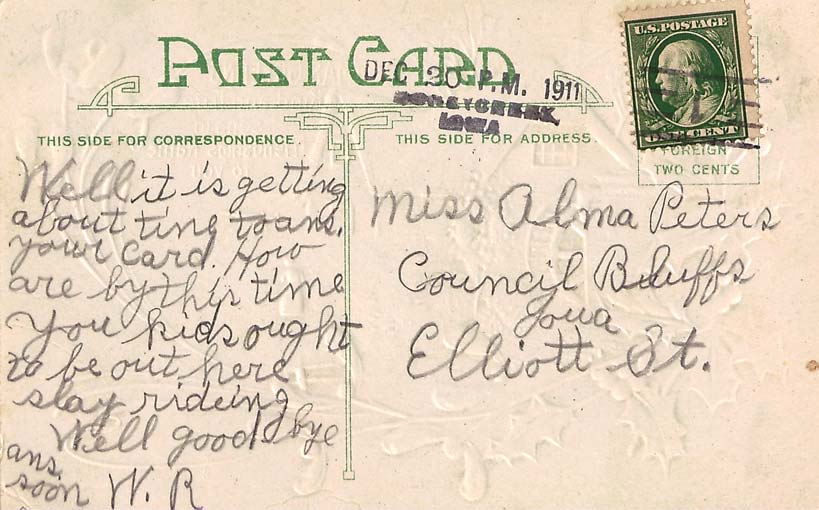 POST CARD
DEC 30 P.M. 1911
HONEY CREEK,
IOWA
U.S. POSTAGE
ONE CENT
FOREIGN
TWO CENTS
THIS SIDE FOR CORRESPONDENCE.
THIS SIDE FOR ADDRESS.
Well it is getting
about tine to ans.
your card. How
are by this time
You kids ought
to be out here
slay rideing
Well good bye
ans.
soon W. R
Miss Alma Peters
Council Bluffs
Iowa
Elliott St.